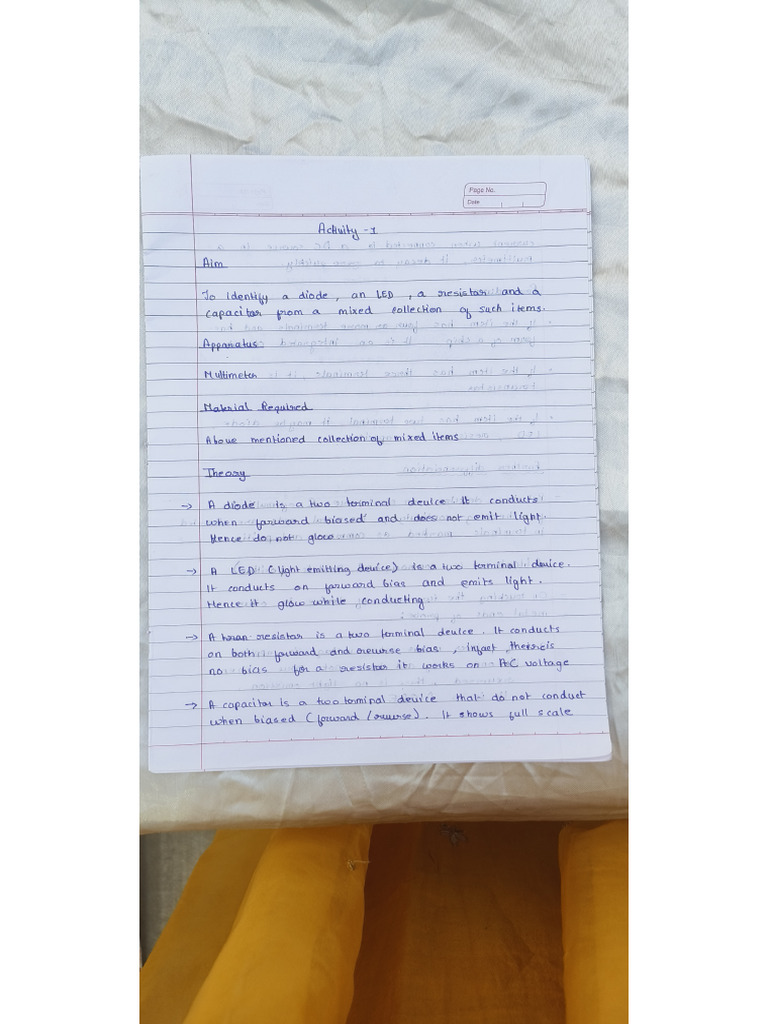 Page No.
Date
Activity - 1
Aim
To Identify a diode, an LED, a resistor and a
capacitor from a mixed collection of such items.
Apparatus
Multimeter
Material Required
Above mentioned collection of mixed items
Theory
→ A diode is a two terminal device It conducts
when forward biased and does not emit light.
Hence do not glow
→ A LED (light emitting device) is a two terminal device.
It conducts on forward bias and emits light.
Hence it glow while conducting
→ A resistor is a two terminal device. It conducts
on both forward and reverse bias, infact, there is
no bias for a resistor it works on AC voltage
→ A capacitor is a two terminal device that do not conduct
when biased (forward/reverse). It shows full scale